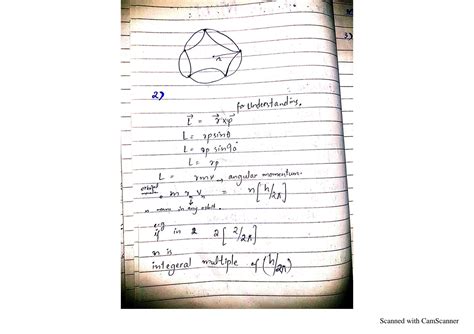 r
2)
for Understanding.
L⃗ = r⃗ x p⃗
L = rp sinθ
L = rp sin 90°
L = rp
L = rmv → angular momentum.
orbital
m rn vn = n[h/2π]
n means in any orbit.
e.g
if in 2 2[2/2π]
n is
integeral multiple of (h/2π)
3)
Scanned with CamScanner